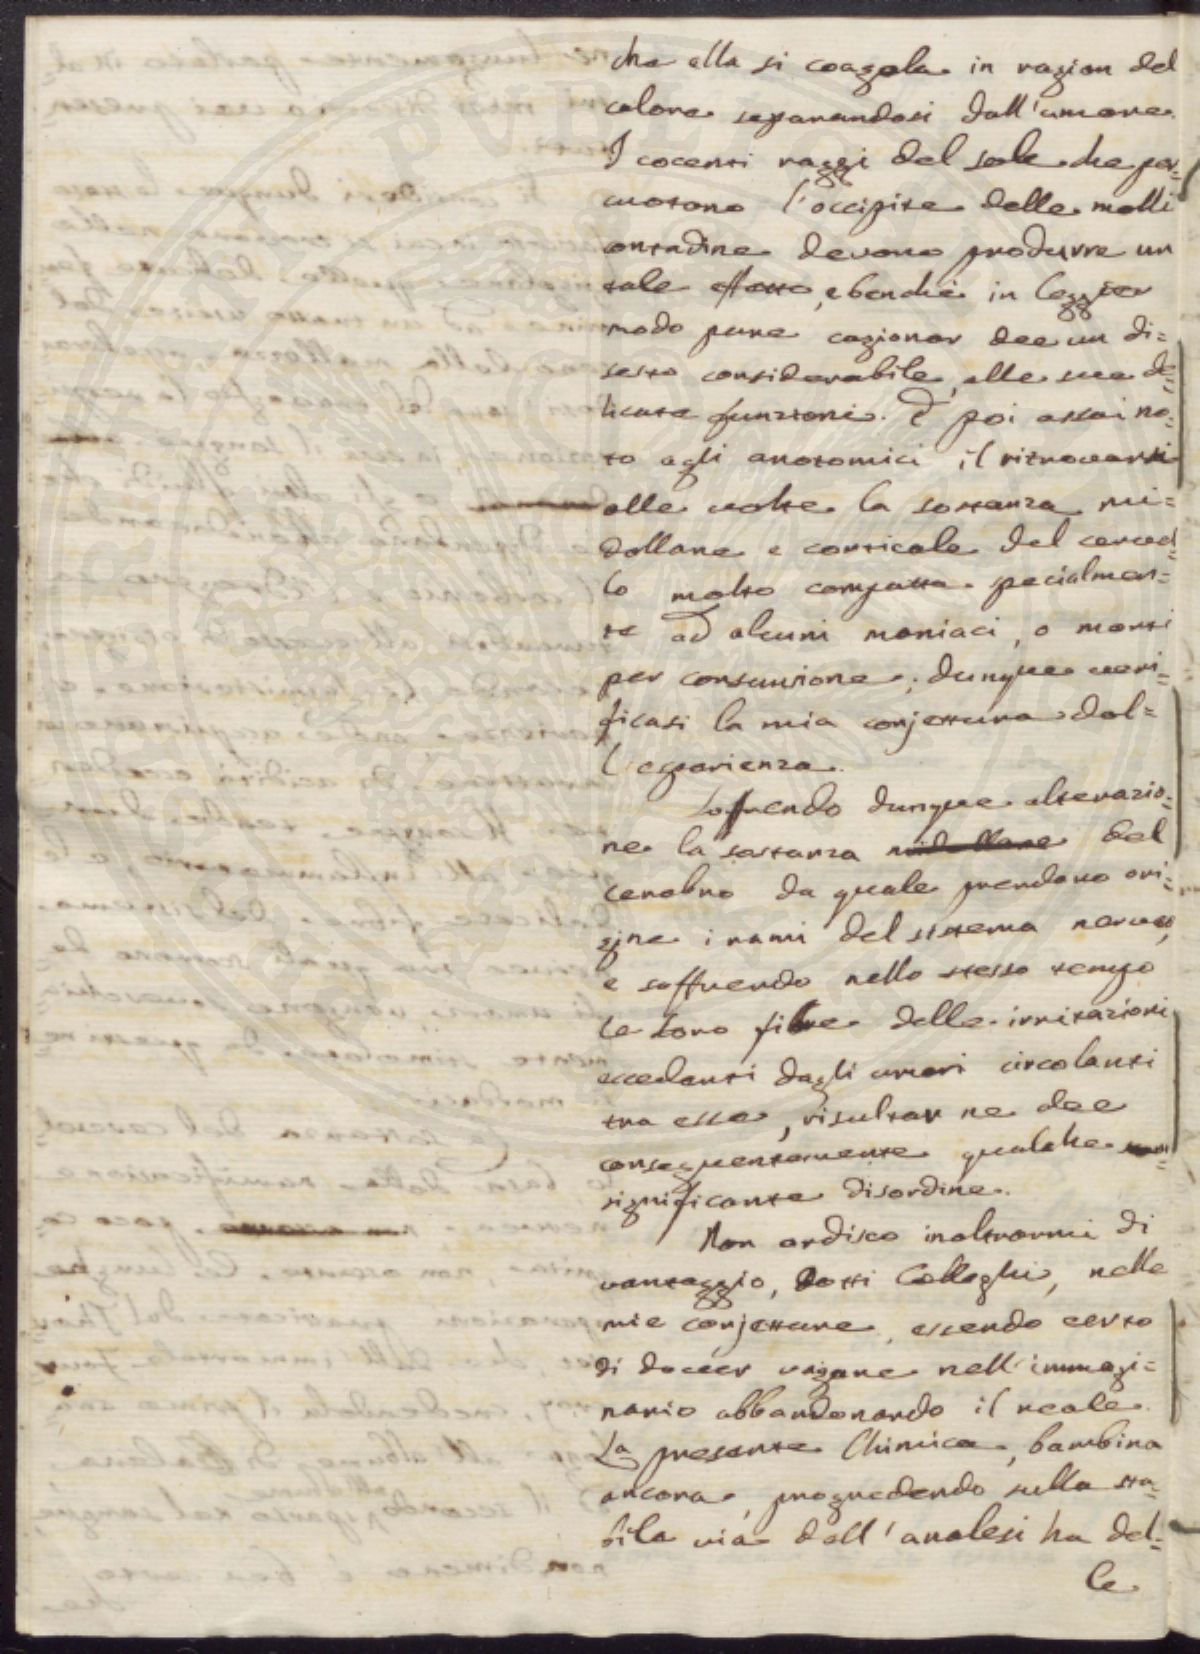 che ella si coagola in ragion del
calore separandosi dall'umore.
I cocenti raggi del sole che per=
cuotono l'occipite delle molli
contadine devono produrre un
tale effetto, e benchè in leggier
modo pure cagionar dee un di=
sesto considerabile alle sue de=
licate funzioni. È poi assai no=
to agli anotomici il ritrovarsi
alle volte la sostanza mi=
dollare e corticale del cervel=
lo molto compatta specialmen=
te ad alcuni maniaci, o morti
per consunzione; dunque veri=
ficasi la mia conjettura dal=
l'esperienza.
Soffrendo dunque alterazio=
ne la sostanza midollare del
cerebro da quale prendono ori=
gine i rami del sistema nervoso,
e soffrendo nello stesso tempo
le loro fibre delle irritazioni
eccedenti dagli umori circolanti
tra esse, risultar ne dee
conseguentemente qualche
significante disordine.
Non ardisco inoltrarmi di
vantaggio, Dotti Colleghi, nelle
mie conjetture, essendo certo
di dover vagare nell'immagi=
nario abbandonando il reale.
La presente Chimica, bambina
ancora, progredendo sulla sta=
bile via dell'analesi ha del=
le